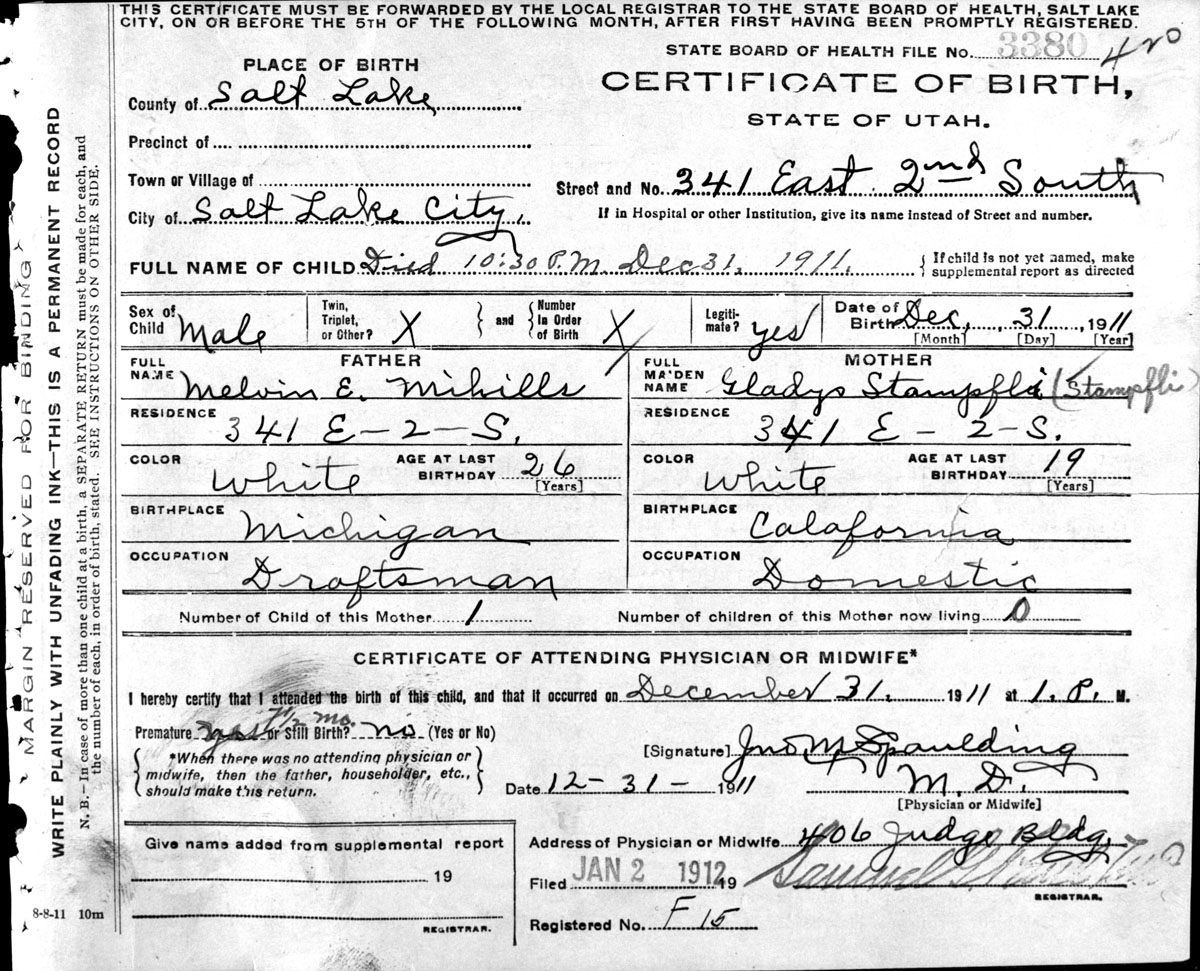 THIS CERTIFICATE MUST BE FORWARDED BY THE LOCAL REGISTRAR TO THE STATE BOARD OF HEALTH, SALT LAKE
CITY, ON OR BEFORE THE 5TH OF THE FOLLOWING MONTH, AFTER FIRST HAVING BEEN PROMPTLY REGISTERED.
STATE BOARD OF HEALTH FILE No. 3380 420
PLACE OF BIRTH
CERTIFICATE OF BIRTH,
STATE OF UTAH.
County of Salt Lake
Precinct of
Town or Village of
Street and No. 341 East 2nd South
City of Salt Lake City,
If in Hospital or other Institution, give its name instead of Street and number.
FULL NAME OF CHILD Died 10:30 P.M. Dec 31, 1911. { If child is not yet named, make supplemental report as directed
Sex of Child Male
Twin, Triplet, or Other? X } and { Number In Order of Birth X
Legitimate? yes
Date of Birth Dec, 31, 1911
[Month] [Day] [Year]
FATHER
FULL NAME Melvin E. Mihills
RESIDENCE
341 E-2-S.
COLOR White AGE AT LAST BIRTHDAY 26 [Years]
BIRTHPLACE Michigan
OCCUPATION Draftsman
MOTHER
FULL MAIDEN NAME Gladys Stampfli (Stampfli)
RESIDENCE
341 E-2-S.
COLOR White AGE AT LAST BIRTHDAY 19 [Years]
BIRTHPLACE Calafornia
OCCUPATION Domestic
Number of Child of this Mother 1 Number of children of this Mother now living 0
CERTIFICATE OF ATTENDING PHYSICIAN OR MIDWIFE*
I hereby certify that I attended the birth of this child, and that it occurred on December 31, 1911 at 1. P. M.
7 1/2 mo.
Premature yes or Still Birth? no (Yes or No)
{ *When there was no attending physician or midwife, then the father, householder, etc., should make this return. }
[Signature] Jno M Spaulding
M. D.
[Physician or Midwife]
Date 12-31-1911
Give name added from supplemental report
19
REGISTRAR.
Address of Physician or Midwife 406 Judge Bldg,
Filed JAN 2 1912 19
REGISTRAR.
Registered No. F 15
8-8-11 10m
MARGIN RESERVED FOR BINDING
WRITE PLAINLY WITH UNFADING INK—THIS IS A PERMANENT RECORD
N. B. - In case of more than one child at a birth, a SEPARATE RETURN must be made for each, and
the number of each, in order of birth, stated. SEE INSTRUCTIONS ON OTHER SIDE.